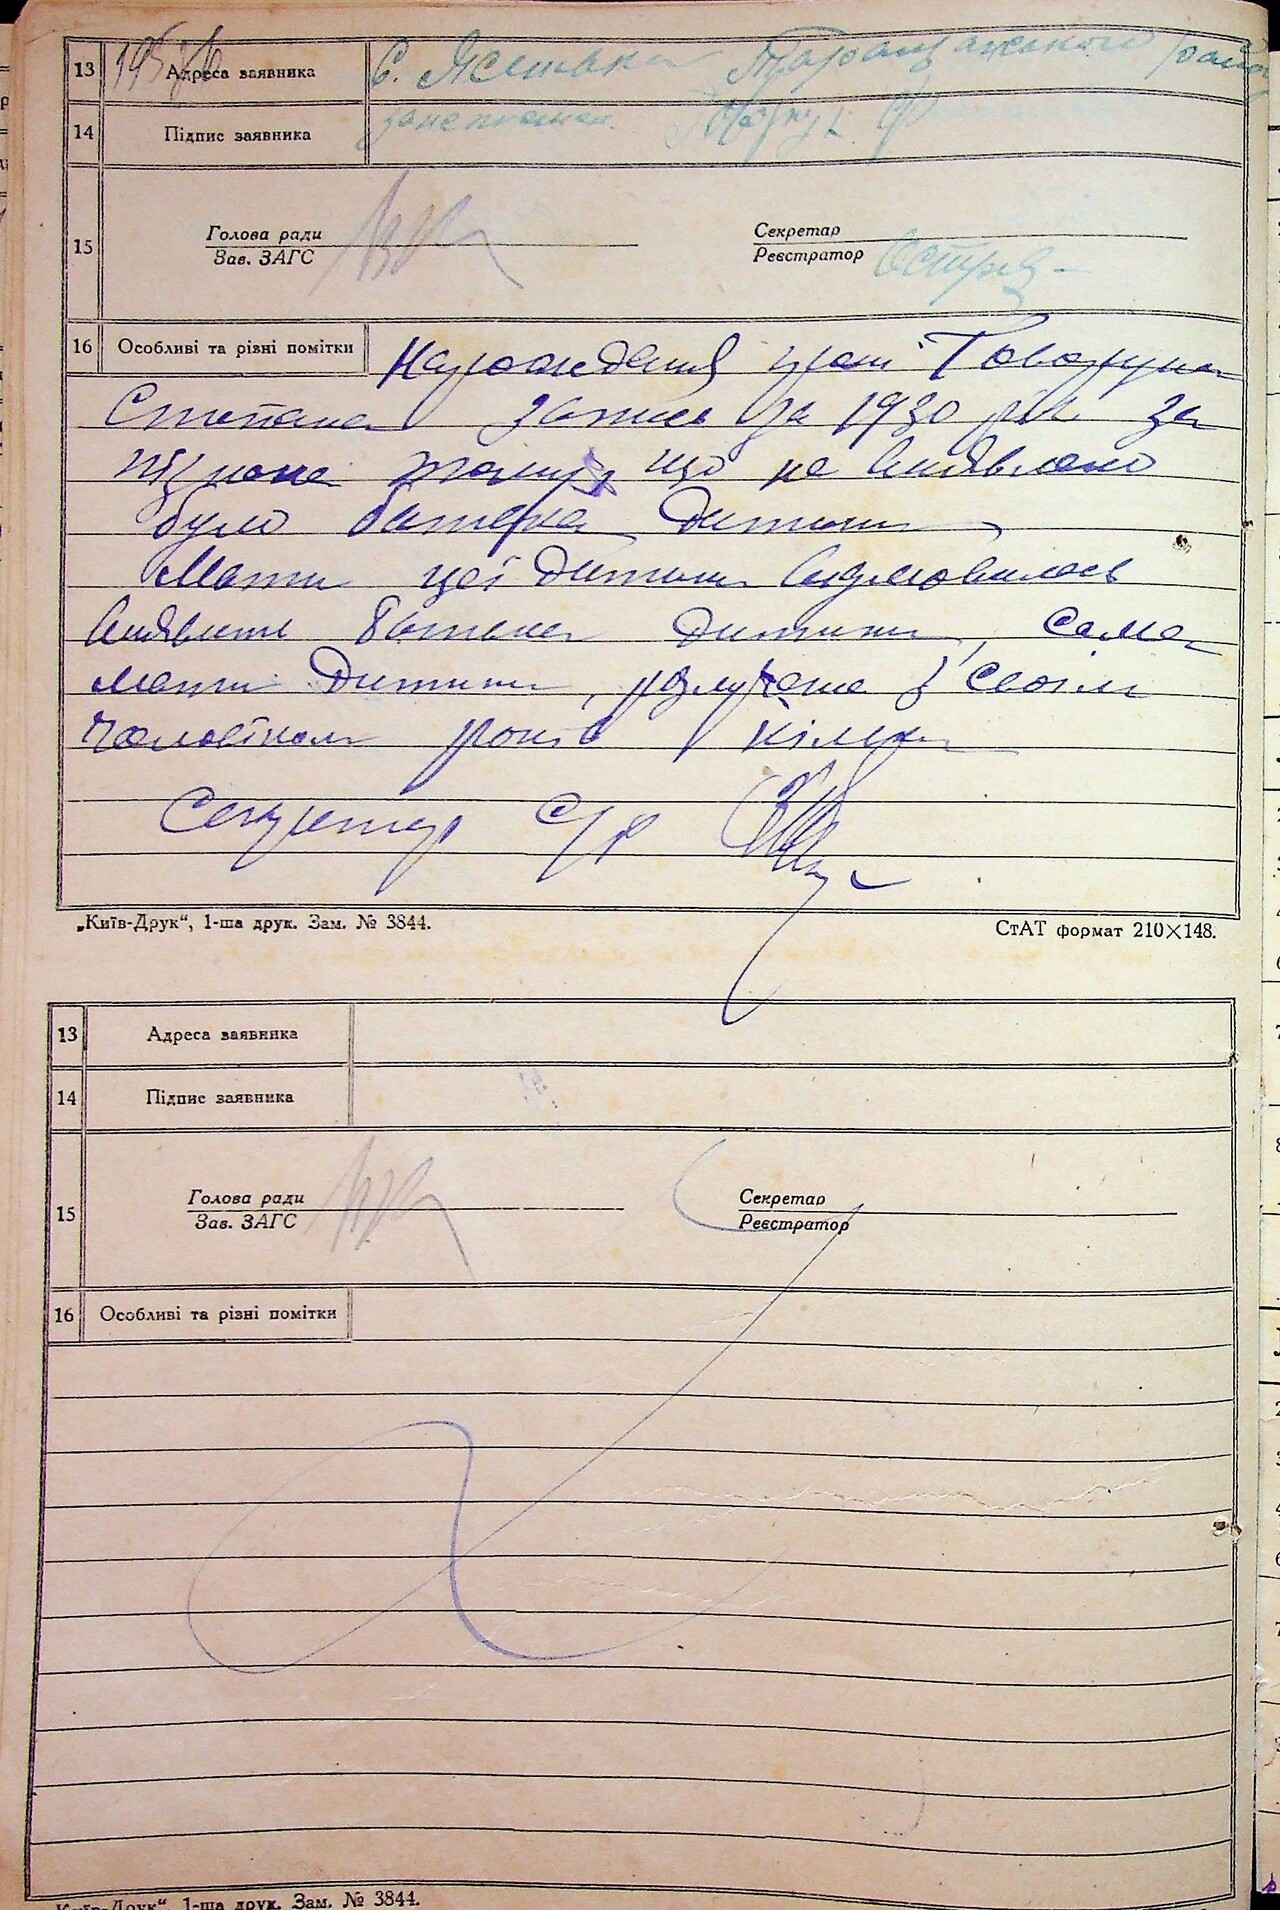 13 Адреса заявника С. Лісянка Таращанського
14 Підпис заявника
15 Голова ради
Зав. ЗАГС
Секретар
Реєстратор
16 Особливі та різні помітки
Народження гром. Товкуна
Степана запис за 1930 рік за
тому що не виявлено
було батька дитини
Мати цеї дитини відмовилась
виявити батька дитини, сама
мати дитини, розлучена з своїм
чоловіком років кілька
Секретар С/р
„Київ-Друк“, 1-ша друк. Зам. № 3844.
СтАТ формат 210×148.
13 Адреса заявника
14 Підпис заявника
15 Голова ради
Зав. ЗАГС
Секретар
Реєстратор
16 Особливі та різні помітки
„Київ-Друк“, 1-ша друк. Зам. № 3844.